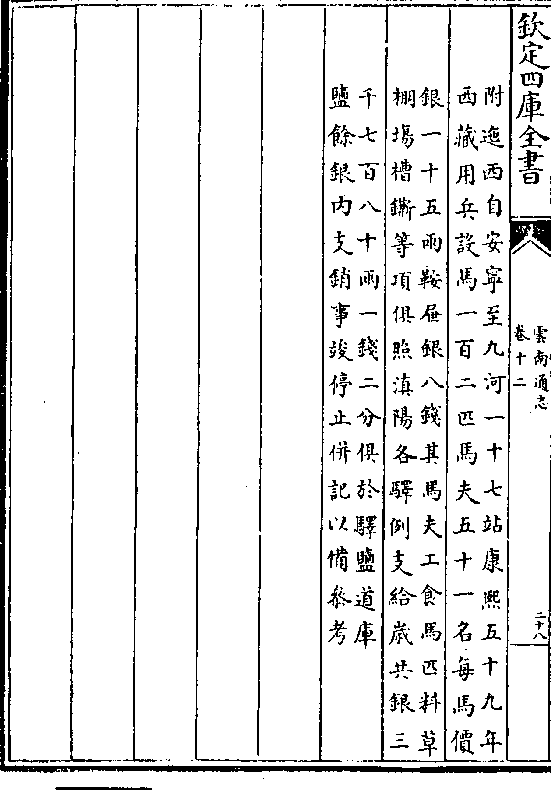 欽定四庫全書
雲南通志
卷十二
二十八
附迤西自安寧至九河一十七站康熙五十九年
西藏用兵設馬一百二匹馬夫五十一名每馬價
銀一十五兩鞍屜銀八錢其馬夫工食馬匹料草
棚塲槽鍘等項俱照滇陽各驛例支給歲共銀三
千七百八十兩一錢二分俱於驛鹽道庫
鹽餘銀内支銷事竣停止併記以備叅考